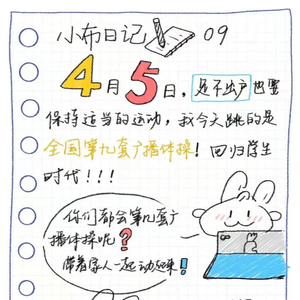 小布日记 09
4月5日，足不出户也要
保持适当的运动，我今天跳的是
全国第九套广播体操！回归学生
时代！！！
你们都会第九套广
播体操呢？
带着家人一起运动起来！